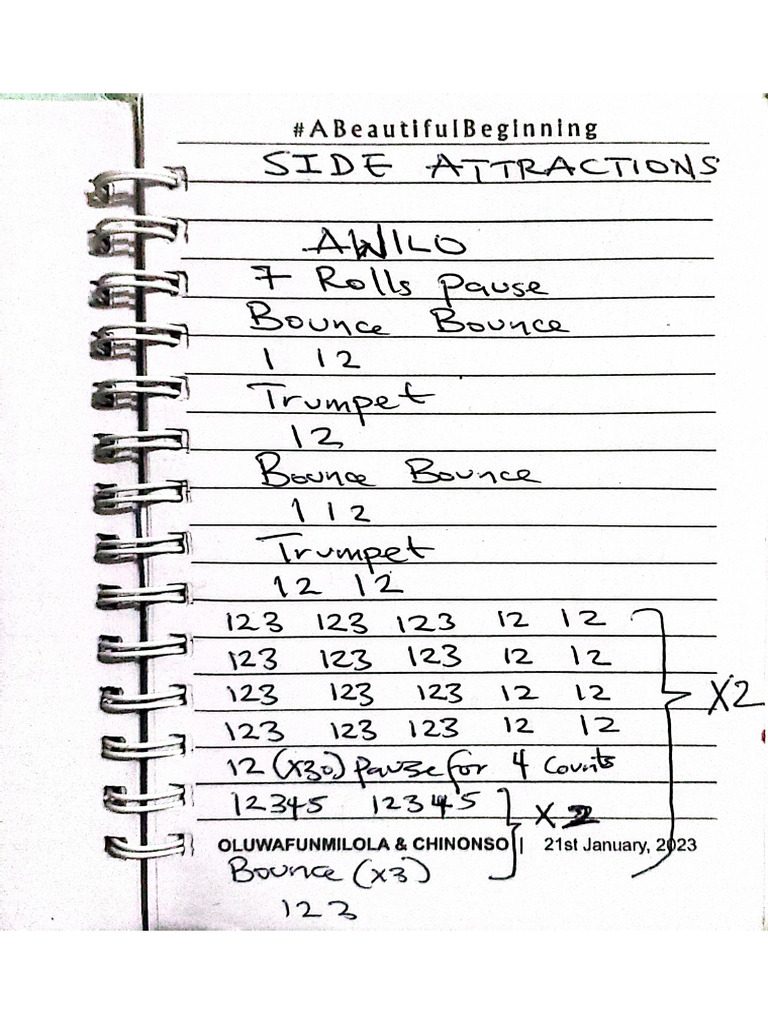 #ABeautifulBeginning
SIDE ATTRACTIONS
AWILO
7 Rolls pause
Bounce Bounce
1 12
Trumpet
12
Bounce Bounce
1 1 2
Trumpet
12 12
123 123 123 12 12
123 123 123 12 12
123 123 123 12 12 X2
123 123 123 12 12
12 (x30) pause for 4 Counts
12345 12345 X2
OLUWAFUNMILOLA & CHINONSO | 21st January, 2023
Bounce (x3)
123